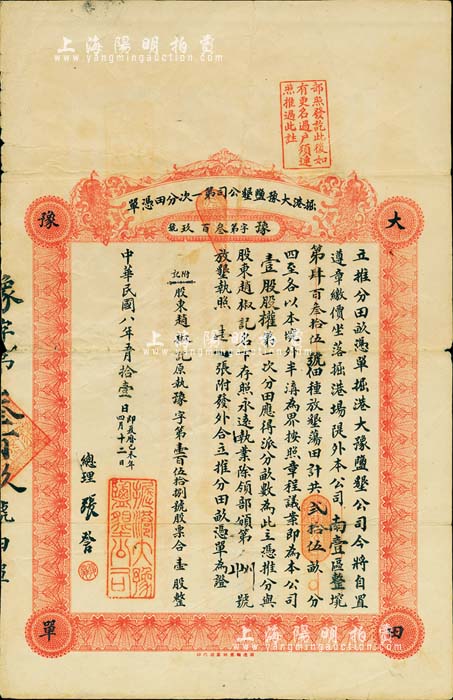 上海陽明拍賣
www.yangmingauction.com
部照發訖此後如
有更名過戶須連
照推過此註
掘港大豫鹽墾公司第一次分田憑單
豫字第叁百玖號
大
豫
田
單
立推分田畝憑單掘港大豫鹽墾公司今將自置
遵章繳價坐落掘港場隄外本公司南壹區整垸
第肆百叁拾伍號佃種放墾蕩田計共弍拾伍畝 分
四至各以本 外半溝為界按照章程議案即為本公司
壹股股權第一次分田應得派分畝數為此立憑推分與
股東趙椒記名下存照永遠執業除領部頒第 號
放墾執照 張附發外合立推分田畝憑單為證
附記
股東趙椒記原執豫字第壹百伍拾捌號股票合壹股整
中華民國八年五月拾壹日即夏曆己未年四月十二日
總理張詧
掘港大豫鹽墾公司
豫字第叁百玖號田單